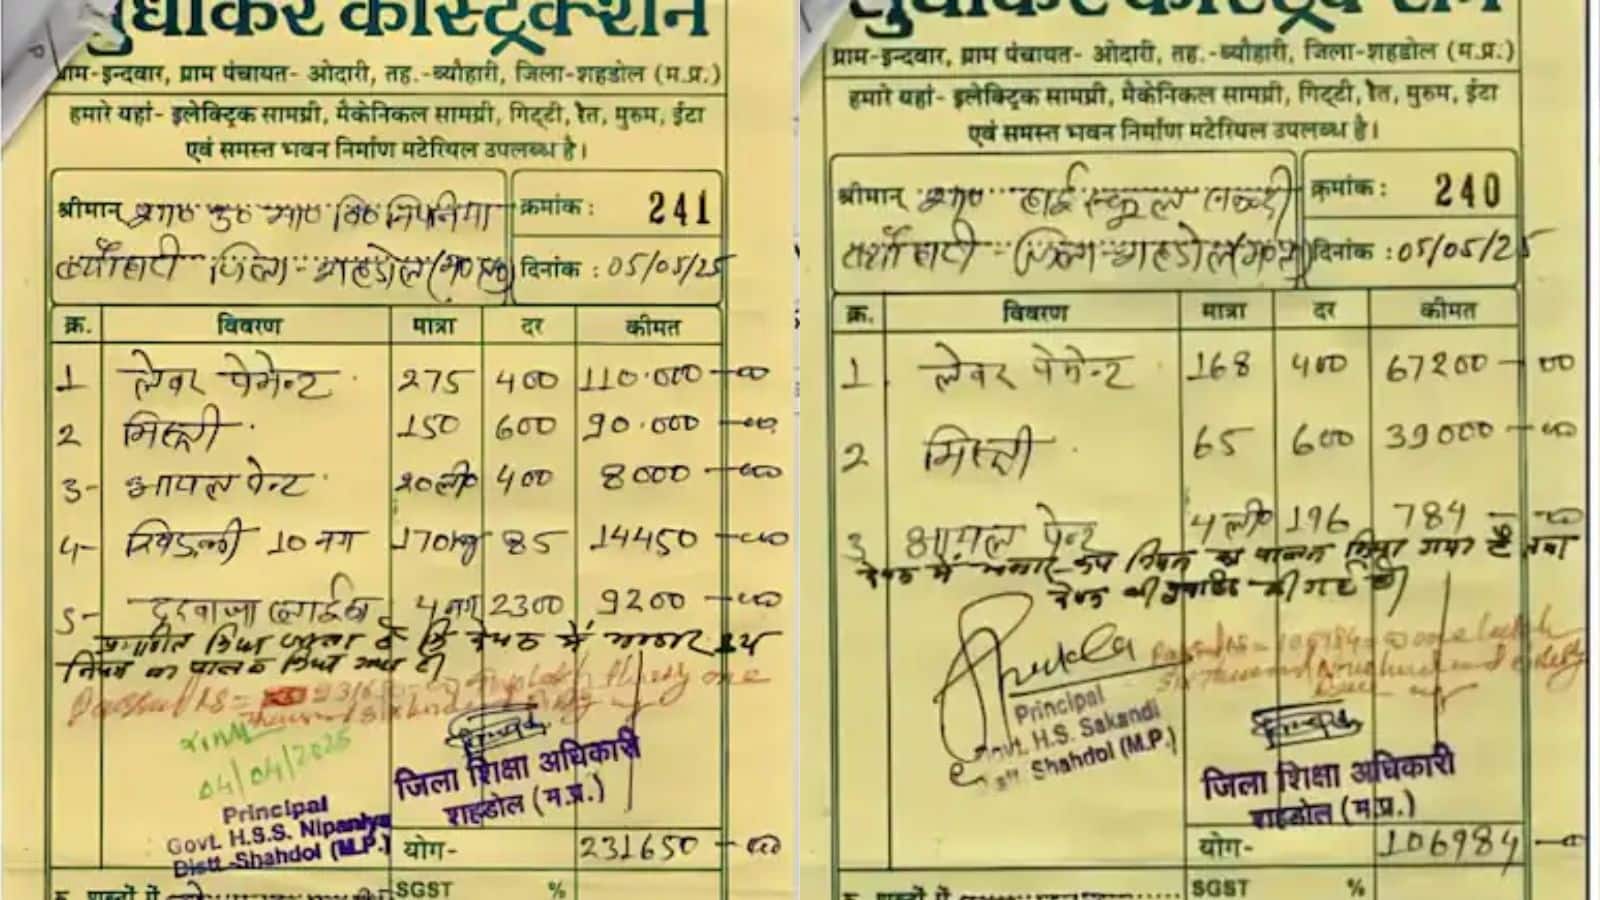 सुधाकर कंस्ट्रक्शन
ग्राम-इन्दवार, ग्राम पंचायत- ओदारी, तह.-ब्यौहारी, जिला-शहडोल (म.प्र.)
हमारे यहां- इलेक्ट्रिक सामग्री, मैकेनिकल सामग्री, गिट्टी, रेत, मुरुम, ईटा
एवं समस्त भवन निर्माण मटेरियल उपलब्ध है।
श्रीमान् क्रमांक : 241
ब्यौहारी जिला-शहडोल (म०प्र०) दिनांक : 05/05/25
क्र. विवरण मात्रा दर कीमत
1 लेबर पेमेन्ट 275 400 110.000 -00
2 मिस्त्री 150 600 90.000 -00
3- आयल पेन्ट 20ली० 400 8000 -00
4- खिडकी 10 नग 170kg 85 14450 -00
5- दरवाजा 4 नग 2300 9200 -00
प्रमाणित किया जाता है कि में भण्डार क्रय
नियम का पालन किया गया है।
Passed RS = 231650
04/04/2025
Principal
Govt. H.S.S. Nipaniya
Distt.-Shahdol (M.P.)
जिला शिक्षा अधिकारी
शहडोल (म.प्र.)
योग- 231650 -00
SGST %
सुधाकर कंस्ट्रक्शन
ग्राम-इन्दवार, ग्राम पंचायत- ओदारी, तह.-ब्यौहारी, जिला-शहडोल (म.प्र.)
हमारे यहां- इलेक्ट्रिक सामग्री, मैकेनिकल सामग्री, गिट्टी, रेत, मुरुम, ईटा
एवं समस्त भवन निर्माण मटेरियल उपलब्ध है।
श्रीमान् हाई स्कूल क्रमांक : 240
ब्यौहारी - जिला-शहडोल (म०प्र०) दिनांक : 05/05/25
क्र. विवरण मात्रा दर कीमत
1 लेबर पेमेन्ट 168 400 67200 -00
2 मिस्त्री 65 600 39000 -00
3 आयल पेन्ट 4 ली० 196 784 -00
में भण्डार क्रय नियम का पालन किया गया है तथा
की गई है।
Shukla
Principal
Govt. H.S. Sakandi
Distt. Shahdol (M.P.)
Passed RS = 106984
जिला शिक्षा अधिकारी
शहडोल (म.प्र.)
योग- 106984 -00
SGST %